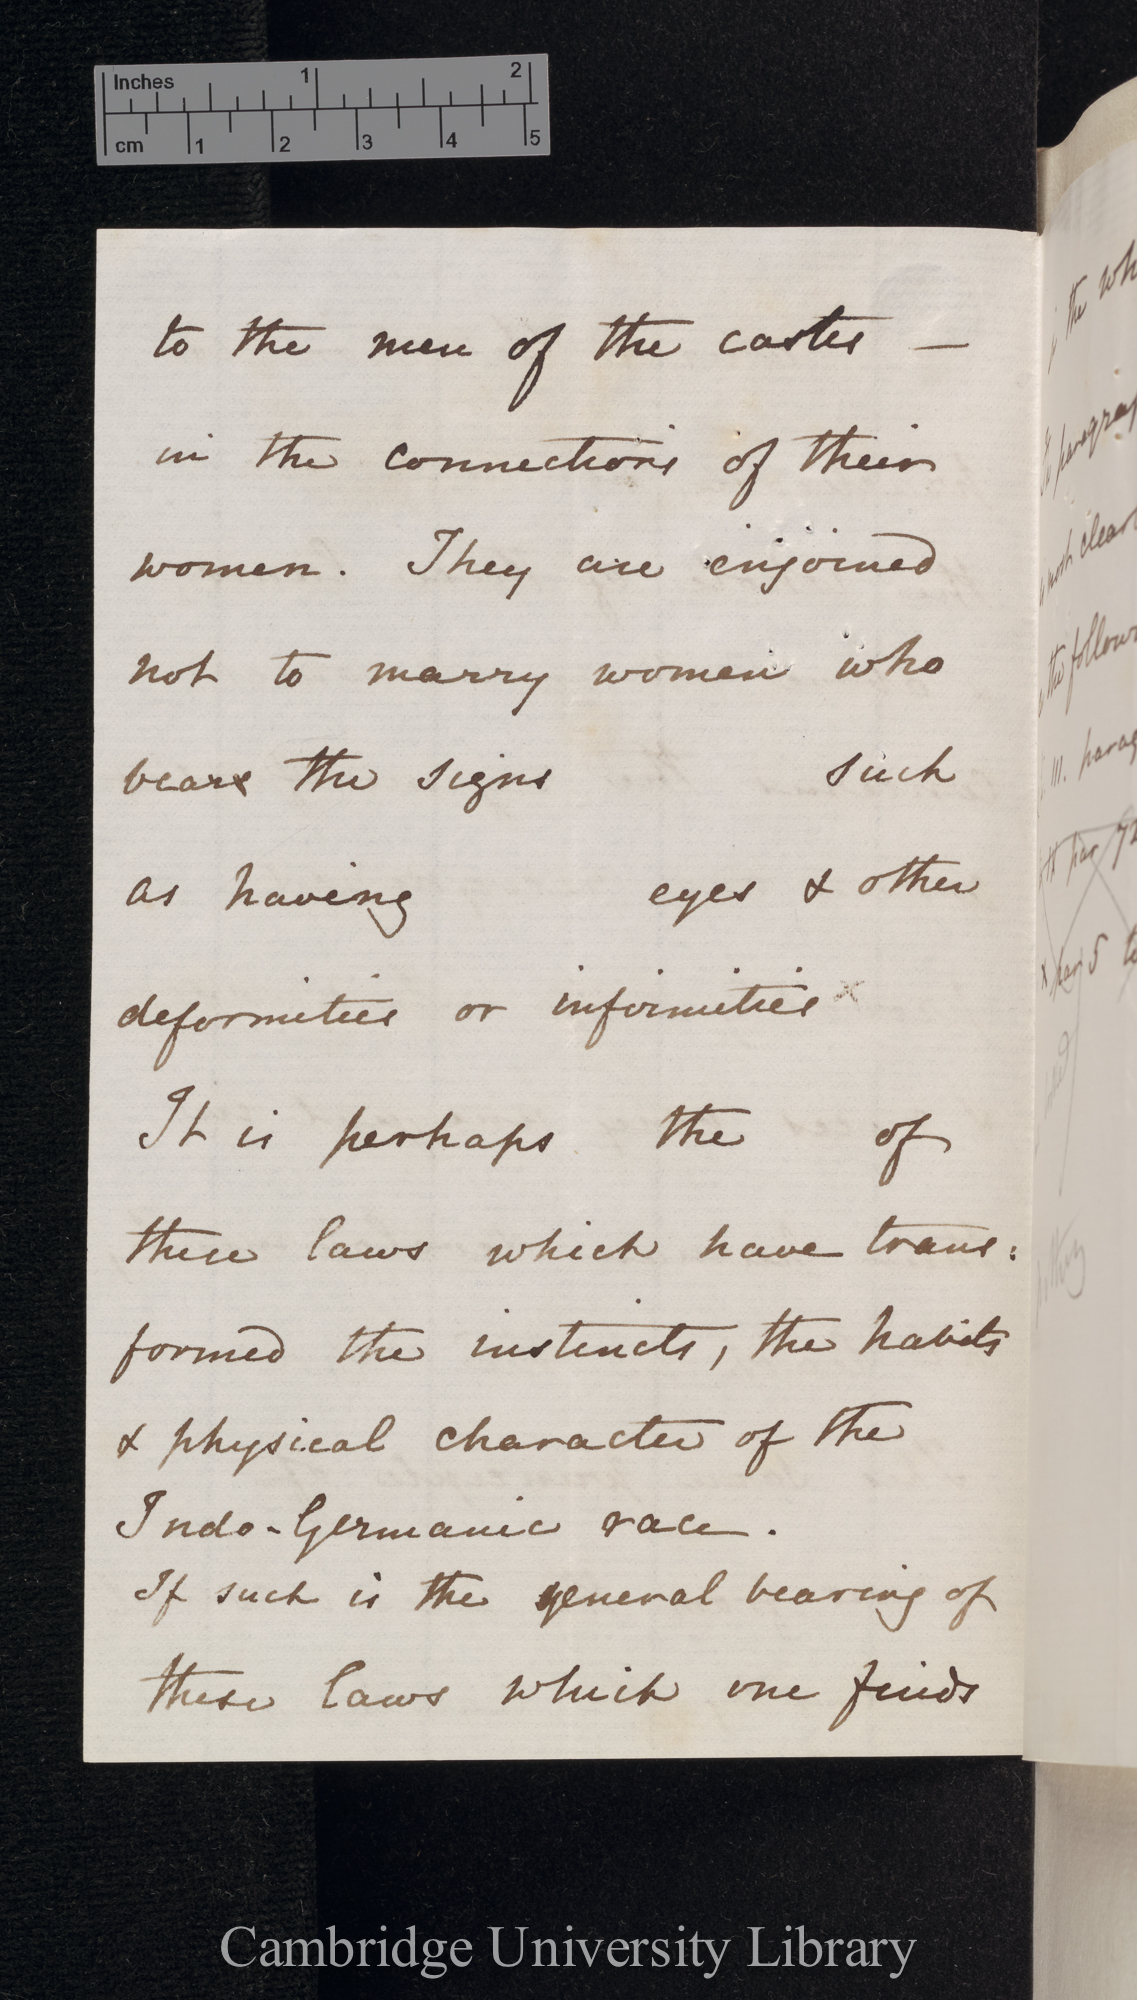 Inches 1 2
cm 1 2 3 4 5
to the men of the castes —
in the connections of their
women. They are enjoined
not to marry women who
bear the signs such
as having eyes & other
deformities or infirmities x
It is perhaps the of
these laws which have trans:
formed the instincts, the habits
& physical character of the
Indo-Germanic race.
If such is the general bearing of
these laws which one finds
the
clear
the follow
III.
5
Cambridge University Library